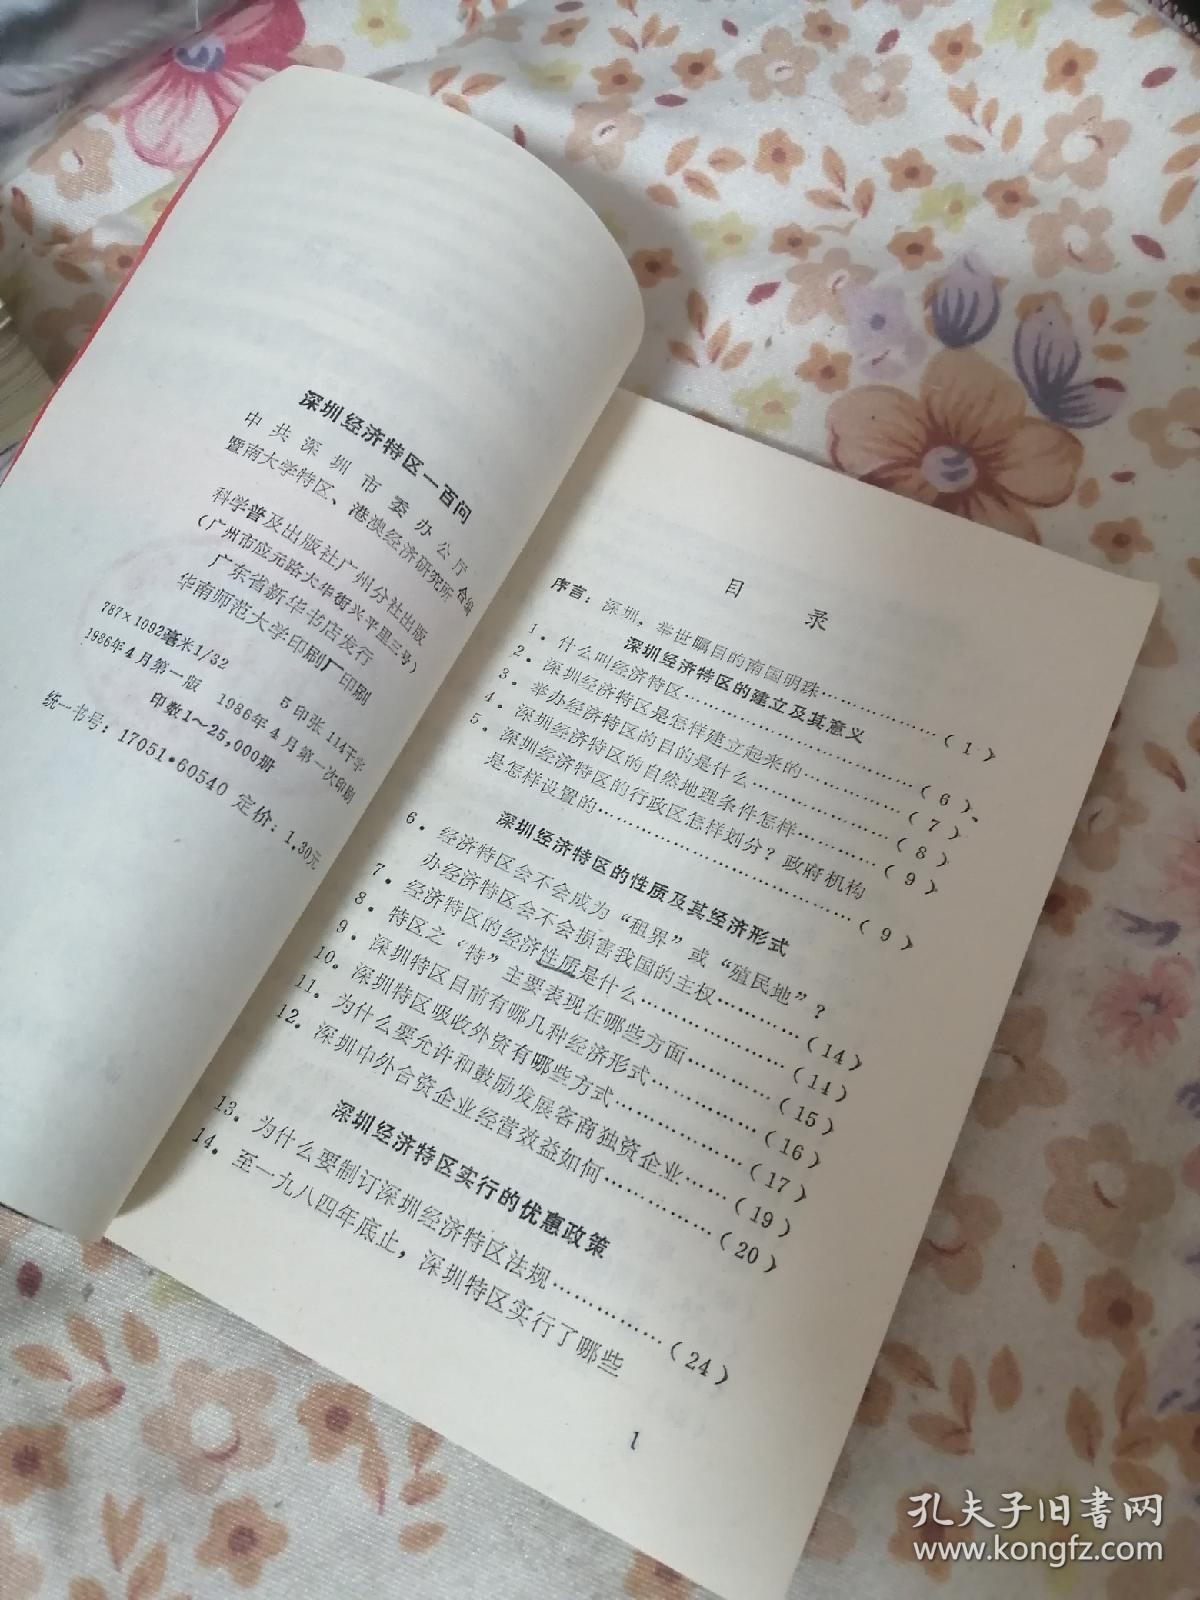 深圳经济特区一百问
中共深圳市委办公厅
暨南大学特区、港澳经济研究所 合编
科学普及出版社广州分社出版
（广州市应元路大华街兴平里三号）
广东省新华书店发行
华南师范大学印刷厂印刷
787×1092毫米1/32 5印张 114千字
1986年4月第一版 1986年4月第一次印刷
印数1～25,000册
统一书号：17051·60540 定价：1.30元
目 录
序言：深圳，举世瞩目的南国明珠……………（1）
深圳经济特区的建立及其意义
1．什么叫经济特区……………（6）
2．深圳经济特区是怎样建立起来的……………（7）
3．举办经济特区的目的是什么……………（8）
4．深圳经济特区的自然地理条件怎样……………（9）
5．深圳经济特区的行政区怎样划分？政府机构
是怎样设置的……………（9）
深圳经济特区的性质及其经济形式
6．经济特区会不会成为“租界”或“殖民地”？
办经济特区会不会损害我国的主权…………（14）
7．经济特区的经济性质是什么……………（14）
8．特区之“特”主要表现在哪些方面…………（15）
9．深圳特区目前有哪几种经济形式…………（16）
10．深圳特区吸收外资有哪些方式……………（17）
11．为什么要允许和鼓励发展客商独资企业……（19）
12．深圳中外合资企业经营效益如何……………（20）
深圳经济特区实行的优惠政策
13．为什么要制订深圳经济特区法规……………（24）
14．至一九八四年底止，深圳特区实行了哪些
1
孔夫子旧书网
www.kongfz.com